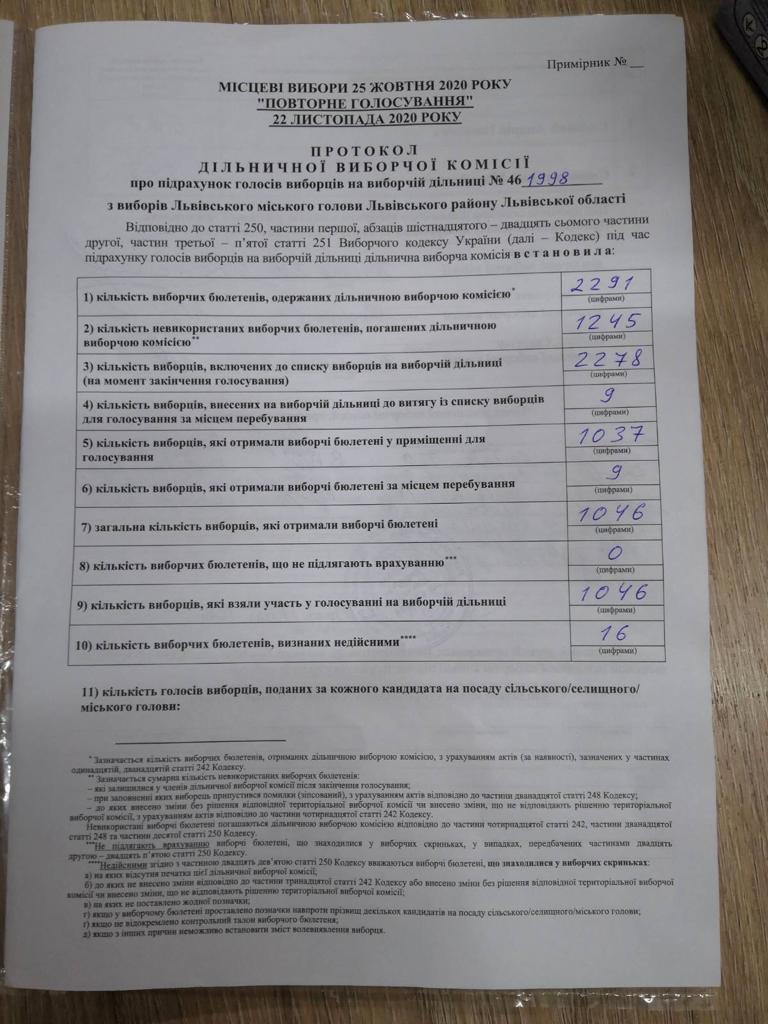 Примірник № __
МІСЦЕВІ ВИБОРИ 25 ЖОВТНЯ 2020 РОКУ
"ПОВТОРНЕ ГОЛОСУВАННЯ"
22 ЛИСТОПАДА 2020 РОКУ
ПРОТОКОЛ
ДІЛЬНИЧНОЇ ВИБОРЧОЇ КОМІСІЇ
про підрахунок голосів виборців на виборчій дільниці № 46 1998
з виборів Львівського міського голови Львівського району Львівської області
Відповідно до статті 250, частини першої, абзаців шістнадцятого – двадцять сьомого частини
другої, частин третьої – п'ятої статті 251 Виборчого кодексу України (далі – Кодекс) під час
підрахунку голосів виборців на виборчій дільниці дільнична виборча комісія встановила:
1) кількість виборчих бюлетенів, одержаних дільничною виборчою комісією* 2291
(цифрами)
2) кількість невикористаних виборчих бюлетенів, погашених дільничною 1245
виборчою комісією** (цифрами)
3) кількість виборців, включених до списку виборців на виборчій дільниці 2278
(на момент закінчення голосування) (цифрами)
4) кількість виборців, внесених на виборчій дільниці до витягу із списку виборців 9
для голосування за місцем перебування (цифрами)
5) кількість виборців, які отримали виборчі бюлетені у приміщенні для 1037
голосування (цифрами)
6) кількість виборців, які отримали виборчі бюлетені за місцем перебування 9
(цифрами)
7) загальна кількість виборців, які отримали виборчі бюлетені 1046
(цифрами)
8) кількість виборчих бюлетенів, що не підлягають врахуванню*** 0
(цифрами)
9) кількість виборців, які взяли участь у голосуванні на виборчій дільниці 1046
(цифрами)
10) кількість виборчих бюлетенів, визнаних недійсними**** 16
(цифрами)
11) кількість голосів виборців, поданих за кожного кандидата на посаду сільського/селищного/
міського голови:
* Зазначається кількість виборчих бюлетенів, отриманих дільничною виборчою комісією, з урахуванням актів (за наявності), зазначених у частинах
одинадцятій, дванадцятій статті 242 Кодексу.
** Зазначається сумарна кількість невикористаних виборчих бюлетенів:
– які залишилися у членів дільничної виборчої комісії після закінчення голосування;
– при заповненні яких виборець припустився помилки (зіпсований), з урахуванням актів відповідно до частини дванадцятої статті 248 Кодексу;
– до яких внесено зміни без рішення відповідної територіальної виборчої комісії чи внесено зміни, що не відповідають рішенню територіальної
виборчої комісії, з урахуванням актів відповідно до частини чотирнадцятої статті 242 Кодексу.
Невикористані виборчі бюлетені погашаються дільничною виборчою комісією відповідно до частини чотирнадцятої статті 242, частини дванадцятої
статті 248 та частини десятої статті 250 Кодексу.
***Не підлягають врахуванню виборчі бюлетені, що знаходилися у виборчих скриньках, у випадках, передбачених частинами двадцять
другою – двадцять п'ятою статті 250 Кодексу.
****Недійсними згідно з частиною двадцять дев'ятою статті 250 Кодексу вважаються виборчі бюлетені, що знаходилися у виборчих скриньках:
а) на яких відсутня печатка цієї дільничної виборчої комісії;
б) до яких не внесено зміни відповідно до частини тринадцятої статті 242 Кодексу або внесено зміни без рішення відповідної територіальної виборчої
комісії чи внесено зміни, що не відповідають рішенню територіальної виборчої комісії;
в) на яких не поставлено жодної позначки;
г) якщо у виборчому бюлетені проставлено позначки навпроти прізвищ декількох кандидатів на посаду сільського/селищного/міського голови;
ґ) якщо не відокремлено контрольний талон виборчого бюлетеня;
д) якщо з інших причин неможливо встановити зміст волевиявлення виборця.